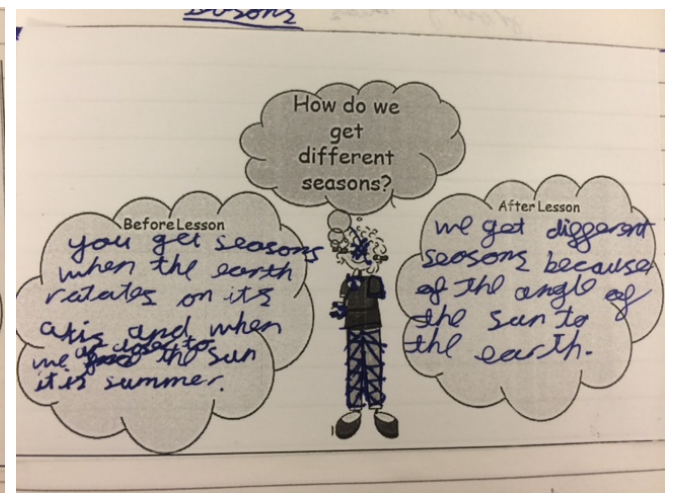 How do we
get
different
seasons?
Before Lesson
you get seasons
when the earth
ratates on its
and when
we are closer to the sun
it is summer.
After Lesson
we get different
seasons because
of the angle of
the sun to
the earth.